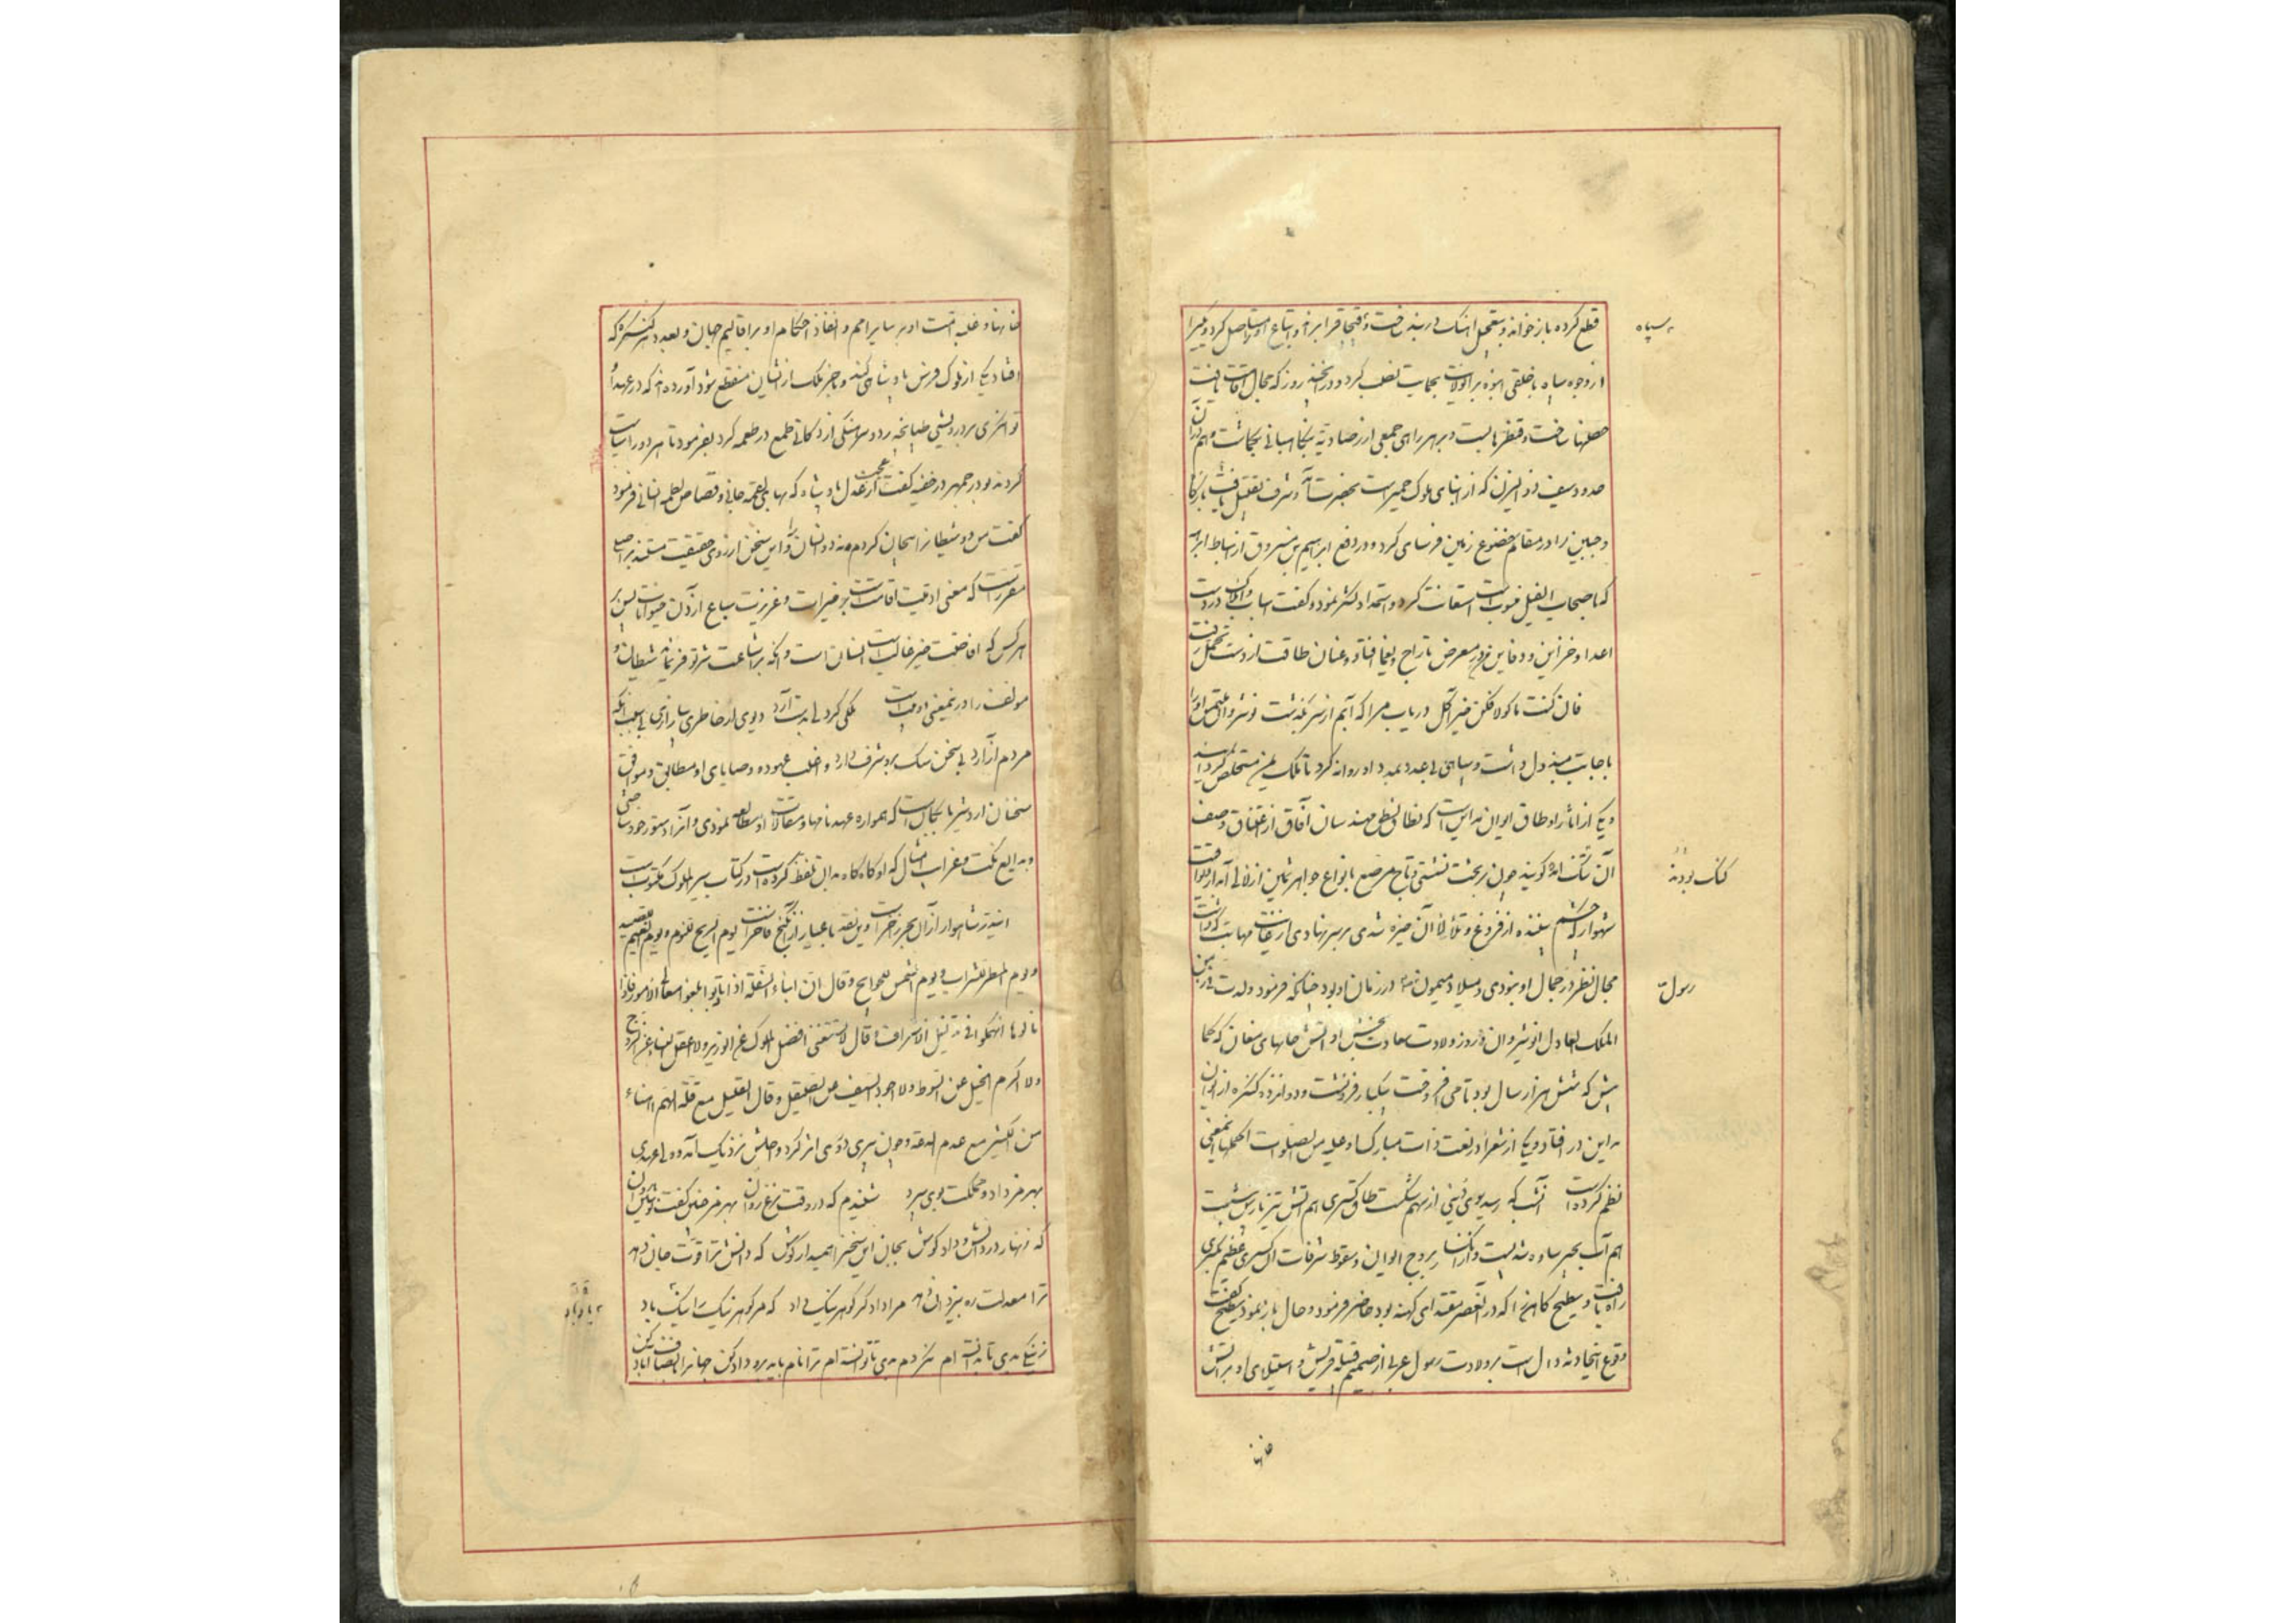 قطع کرده باز خواند و بتعجیل
از وجوه سپاه با خلقی انبوه بر آن ولایت بحمایت نصب کرد و در آن چند روز که مجال اقامت یافت
حصنها ساخت و قنطرها بست و بر هر راهی جمعی از رصادیه بنگاهبانی بگماشت و هم در آن
حدود سیف ذو الیزن که از ابنای ملوک حمیر است بحضرت آمد و شرف تقبیل یافت
و جبین را در مقام خضوع زمین فرسای کرد و در دفع ابراهیم بن مسروق از اسباط ابرهه
که باصحاب الفیل منسوب است استعانت کرد و استمداد لشکر نمود و گفت اسباب و املاک در دست
اعدا و خزاین و دفاین در معرض تاراج و یغما افتاد و عنان طاقت از دست تحمل رفت
فان کنت ماکولا فکن خیر آکل دریاب مرا که آبم از سر بگذشت نوشروان ملتمس او را
باجابت مبذول داشت و سپاهی بی عدد بمدد او روانه کرد تا ملک یمن مستخلص گردانید
و یکی از آثار او طاق ایوان مداین است که نطاق نطق مهندسان آفاق از اعتناق وصف
آن تنگ آمد گویند چون بر تخت نشستی تاج مرصع بانواع جواهر ثمین از لآلی آبدار
شهوار که چشم بیننده از فروغ و تلألؤ آن خیره شدی بر سر نهادی از غایت مهابت که داشت
مجال نظر در جمال او نبودی و میلاد میمون در زمان او بود چنانکه فرمود ولدت فی زمن
الملک العادل انوشیروان و در روز ولادت سعادت بخش او آتش خانهای مغان که
بیش که شش هزار سال بود تا می افروخت بیکبار فرو نشست و دوازده کنگره از ایوان
مداین در افتاد و یکی از شعرا در نعت ذات مبارکش علیه من الصلوات اکملها این معنی
نظم کرده است آنشب که رسید بوی دینی از سهم شکست طاق کسری هم آتش تیز پارس بنشست
هم آب بحیر ساوه شد پست و از آن بروج ایوان و سقوط شرفات آل کسری عظیم بکسری
راه یافت و سطیح کاهن را که در آن عصر مقتدای کهنه بود حاضر فرمود و حال باز نمود سطیح گفت
وقوع این حادثه دال است بر ولادت رسول عربی از صمیم قبیله قریش و استیلای او بر آتش
سپاه
کنک بودند
رسول
خانها
خانها و غلبه امت او بر سایر امم و انفاذ احکام او بر اقالیم جهان و بعدد هر کنگره که
افتاد یکی از ملوک فرس پادشاهی کند و آخر ملک از ایشان منقطع شود آورده اند که در عهد او
توانگری بر درویشی طپانچه زد و سگی از دکانی طمع در طعمه کرد بفرمود تا هر دو را سیاست
کردند بوذرجمهر در خفیه گفت عجب از عدل پادشاه که بهای لقمه جانی و قصاص لطمه انسانی فرمود
گفت من دو شیطان را بیجان کردم نه دو انسان را و این سخن از روی حقیقت مستند بر اصلی
مقرر است که معنی آدمیت اقامت است بر خیرات و غریزت سباع آزردن حیوانات پس
هر کس که افاضت خیر غالب است انسان است و آنکه بر اشاعت شر توفر نماید شیطان و
مؤلف راد در این معنی آمده است ملکی گر دلی بدست آرد دیوی ار خاطری بیازاری
مردم آزار بی سخن سگ برو شرف دارد و اغلب عهود و وصایای او مطابق و موافق
سخنان اردشیر بابکان است که همواره عهدنامها و مقالات او مطالعه نمودی و آنرا دستور خود ساختی
و بدایع نکت و غرایب امثال که او گاه گاه بدان تلفظ کرده است در کتاب سیر الملوک مکتوب است
این در شاهوار از آن بحر زاخر است و این نقد باعیار از آن گنج فاخر است یوم الریح للنوم و یوم الغیم للصید
و یوم المطر للشراب و یوم الشمس للحوایج و قال ان ابناء السفلة اذا تأدبوا بلغوا معالی الامور
نالوها انهمکوا فی تذلیل الاشراف و قال لا یستغنی افضل الملوک عن الوزیر و لا اعقل النساء عن الزوج
ولا اکرم الخیل عن السوط ولا اجود السیف عن الصیقل و قال القلیل مع قلة الهم اهناء
من الکثیر مع عدم الدعة و چون پیری در وی اثر کرد و اجلش نزدیک آمد ولی عهدی
بهرمز داد و مملکت بوی سپرد شنیدم که در وقت نزع روان بهرمز چنین گفت نوشیروان
که زنهار در دانش و داد کوش بجان این سخن را همی دار گوش که دانش ترا قوت جان دهد
ترا معدلت ره بیزدان دهد مرا داد گر گوهر نیک داد که مر گوهر نیک را نیک باد
ز نیکی بدی تا بدانسته ام نکردم بدی تا توانسته ام ترا نام باید برو داد کن جهان را بانصاف آباد کن